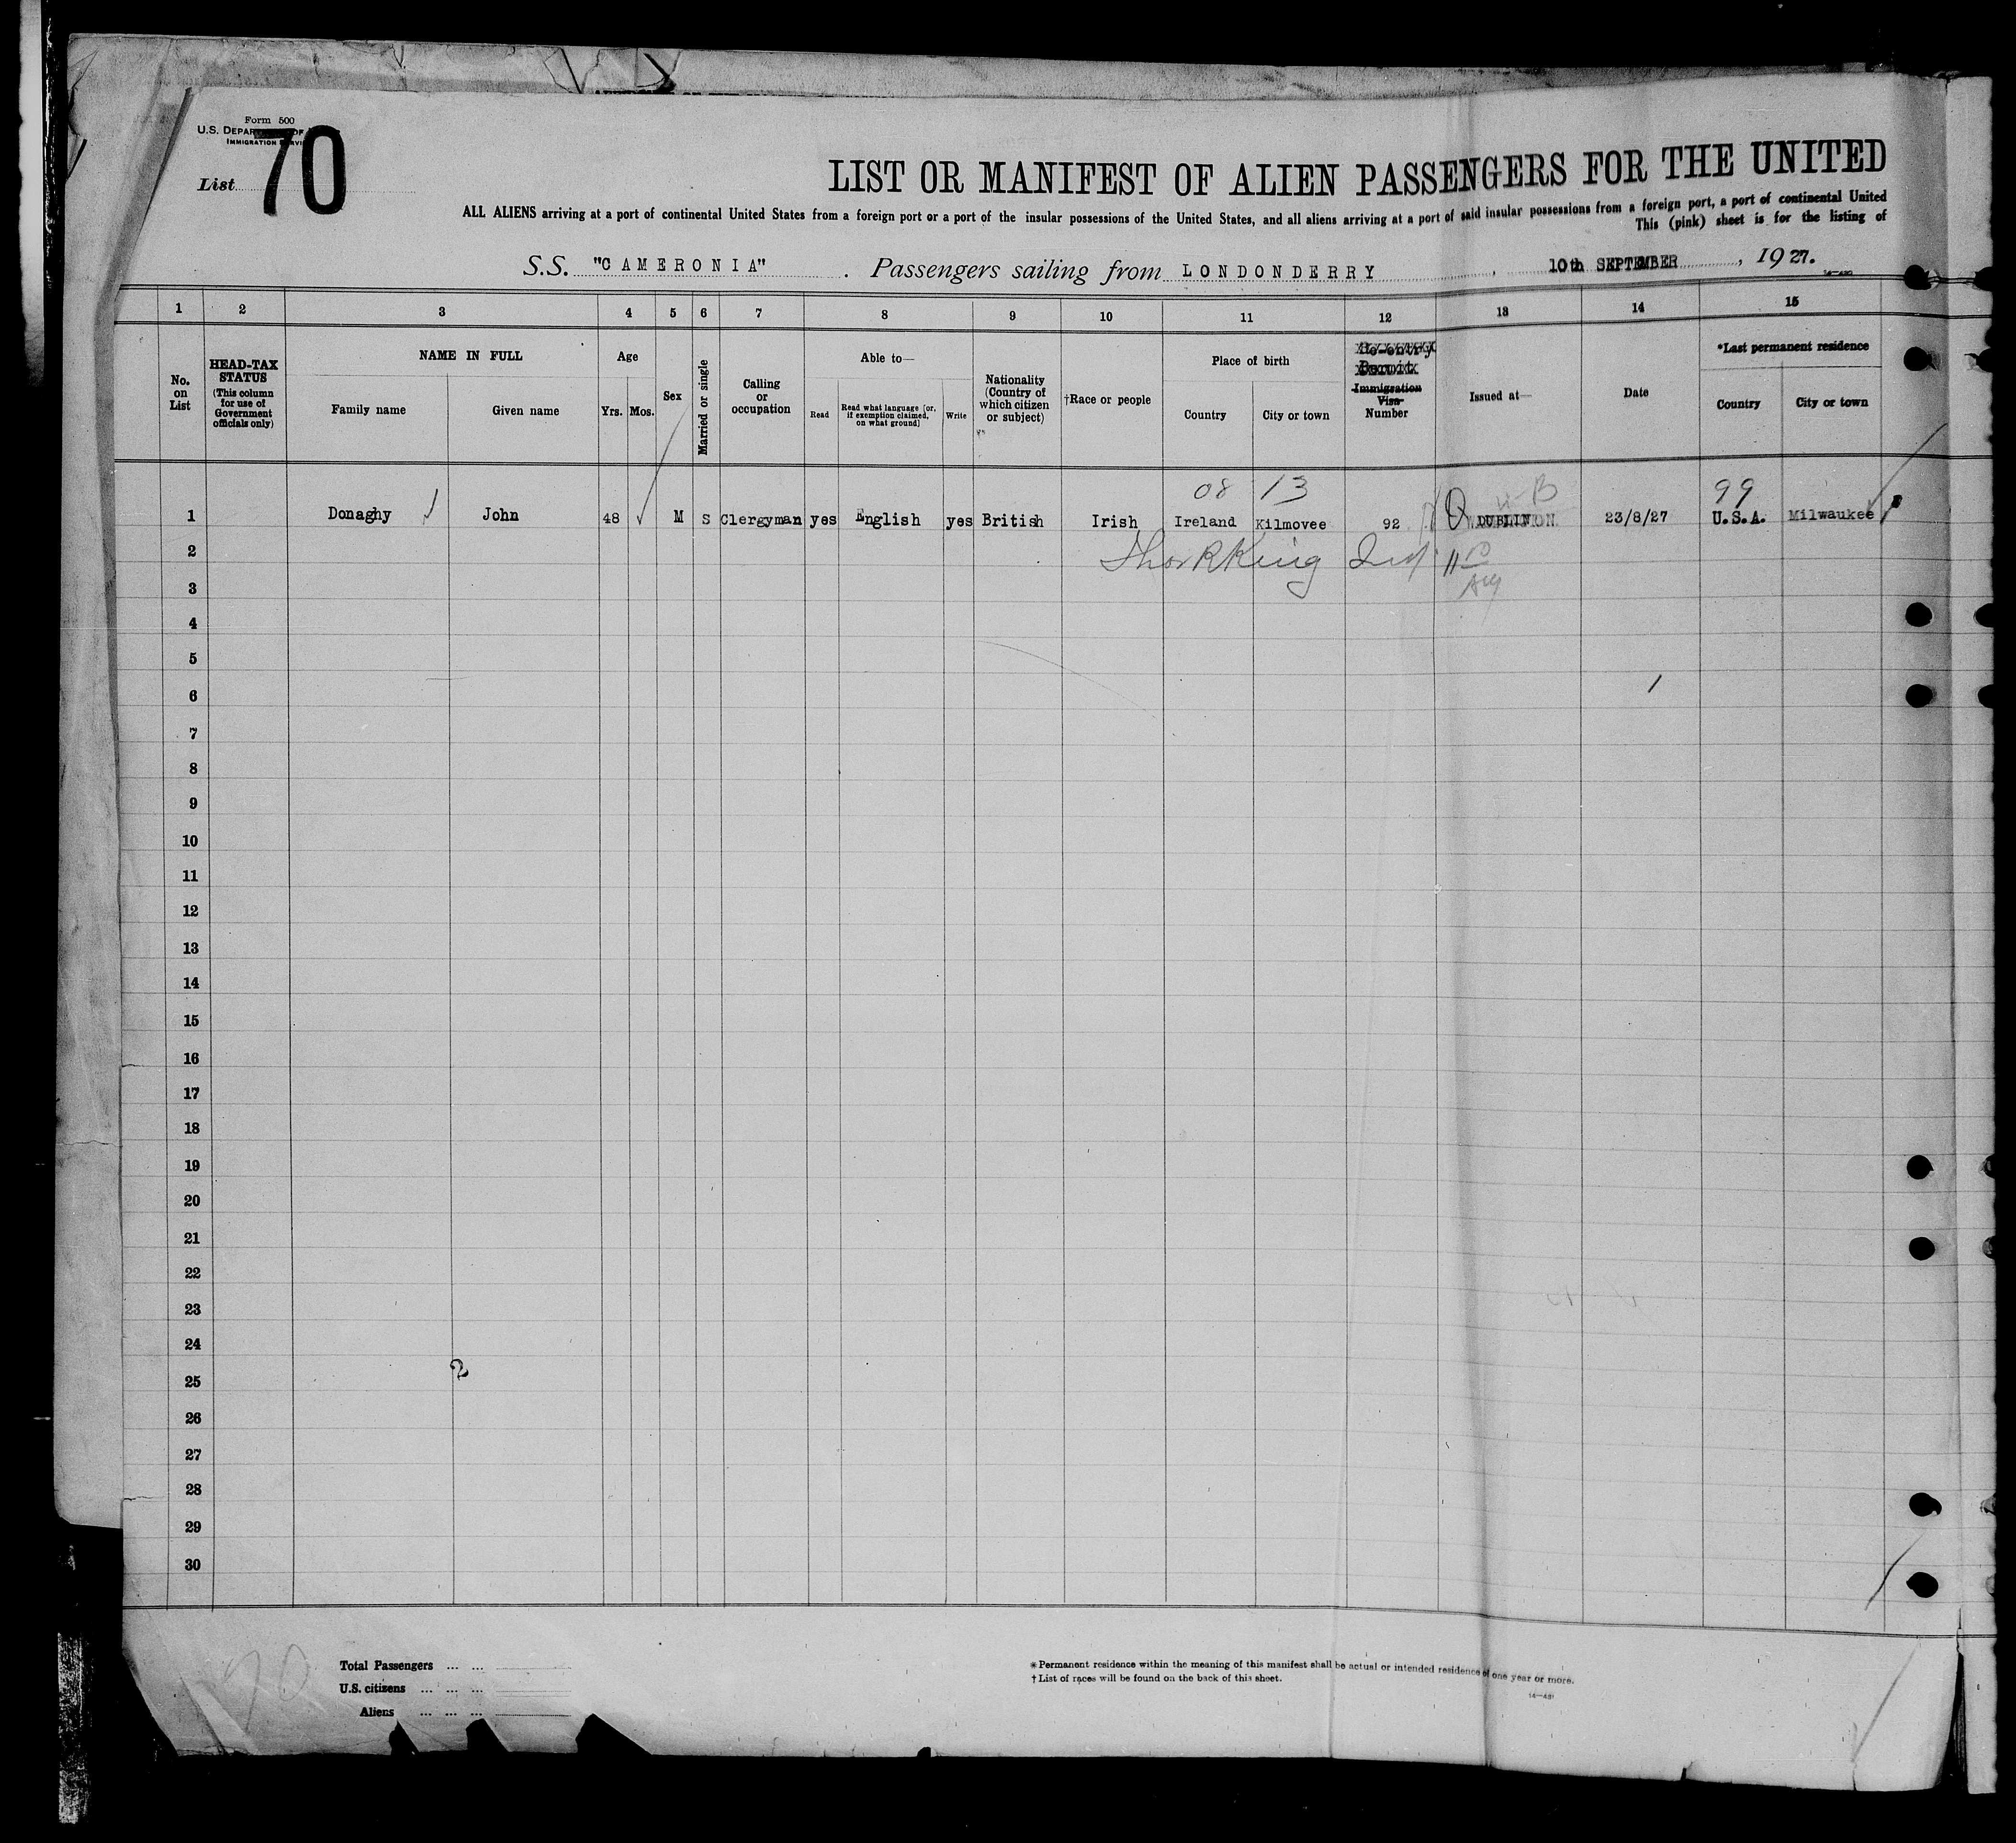 Form 500
U.S. DEPAR OF
IMMIGRATION SERVI
List 70
LIST OR MANIFEST OF ALIEN PASSENGERS FOR THE UNITED
ALL ALIENS arriving at a port of continental United States from a foreign port or a port of the insular possessions of the United States, and all aliens arriving at a port of said insular possessions from a foreign port, a port of continental United
This (pink) sheet is for the listing of
S.S. "CAMERONIA" . Passengers sailing from LONDONDERRY , 10th SEPTEMBER , 1927.
1 2 3 4 5 6 7 8 9 10 11 12 13 14 15
No. on List
HEAD-TAX STATUS (This column for use of Government officials only)
NAME IN FULL
Family name
Given name
Age
Yrs. Mos.
Sex
Married or single
Calling or occupation
Able to—
Read
Read what language [or, if exemption claimed, on what ground]
Write
Nationality (Country of which citizen or subject)
†Race or people
Place of birth
Country
City or town
Re-entry Permit
Immigration Visa Number
Issued at—
Date
*Last permanent residence
Country
City or town
08 13 99
1 Donaghy John 48 M S Clergyman yes English yes British Irish Ireland Kilmovee 92 DUBLIN 23/8/27 U.S.A. Milwaukee
2
3
4
5
6
7
8
9
10
11
12
13
14
15
16
17
18
19
20
21
22
23
24
25
26
27
28
29
30
70
Total Passengers ... ...
U.S. citizens ... ... ...
Aliens ... ... ...
*Permanent residence within the meaning of this manifest shall be actual or intended residence of one year or more.
†List of races will be found on the back of this sheet.